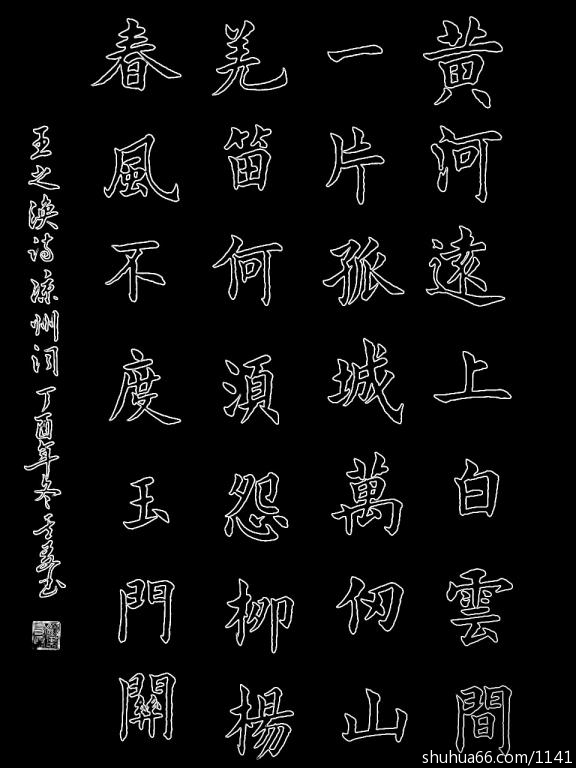 黄河遠上白雲間
一片孤城萬仞山
羌笛何湏怨柳楊
春風不度玉門關
王之涣诗凉州词丁酉年冬书
shuhua66.com/1141